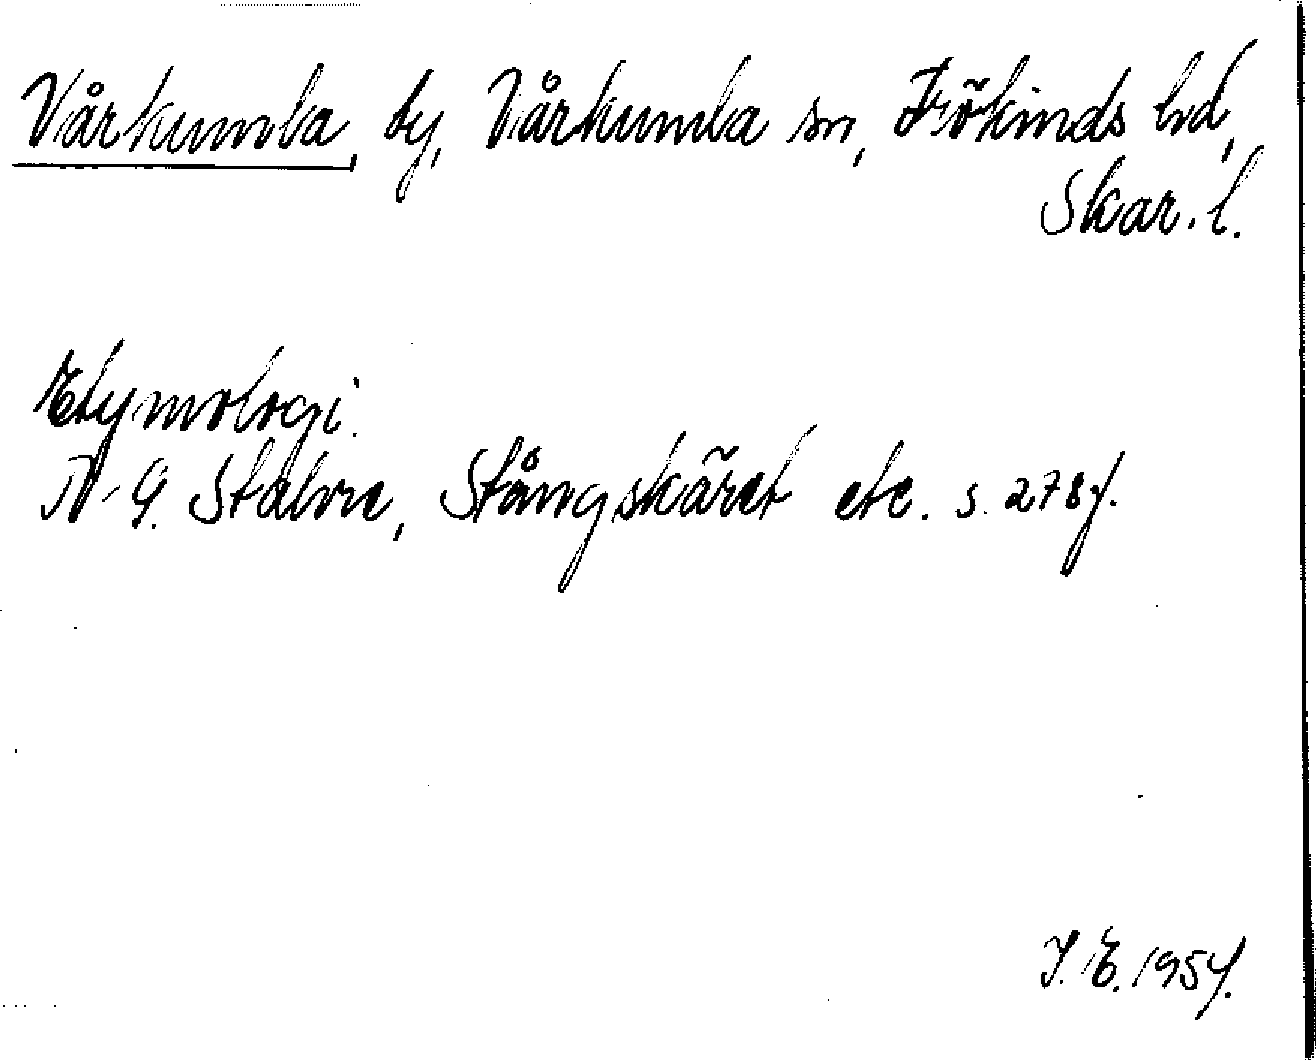 Vårkumla, by, Vårkumla sn, Frökinds hd,
Skar. l.
Etymologi.
N-G. Stahre, Stångskäret etc. s. 278 f.
I. E. 1954.